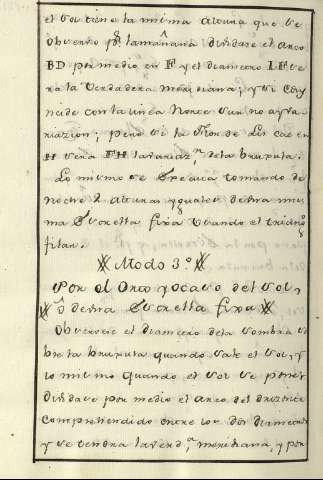 el sol tiene la misma altura que se
observo p.r la mañana dividase el arco
BD por medio en F y el diametro IF se
ra la verdadera meridiana; y si coyn
cide con la linea Norte Sur no ay va-
riazion; pero si la de Lis cae en
H sera FH la variaz.n de la bruxula.
Lo mismo se practica tomando de
noche 2 alturas yguales de una mis
ma Estrella fixa quando el
filan.
Modo 3.o
Por el Orto y ocaso del sol,
ô de una Estrella fixa
Observese el diametro de la sombra so
bre la bruxula quando sale el sol, y
lo mismo quando el sol se pone;
dividase por medio el arco del orizonte
comprehendido entre los dos diametros
y se tendra la verd.a meridiana, y por